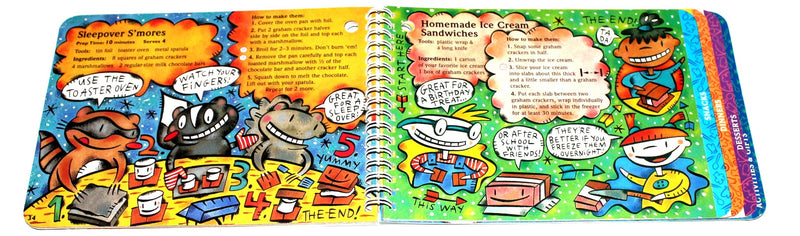 Sleepover S'mores
Prep Time: 10 minutes Serves 4
Tools: tin foil toaster oven metal spatula
Ingredients: 8 squares of graham crackers
4 marshmallows 2 regular-size milk chocolate bars
How to make them:
1. Cover the oven pan with foil.
2. Put 2 graham cracker halves
side by side on the foil and top each
with a marshmallow.
3. Broil for 2-3 minutes. Don't burn 'em!
4. Remove the pan carefully and top each
marshmallow with ½ of the
chocolate bar and another cracker half.
5. Squash down to melt the chocolate.
Lift out with your spatula.
Repeat for 2 more.
USE THE
TOASTER OVEN
WATCH YOUR
FINGERS!
GREAT
FOR A
SLEEP-
OVER!
1.
2.
3.
4.
5
YUMMY
THE END!
34
START HERE
Homemade Ice Cream
Sandwiches
Tools: plastic wrap &
a long knife
Ingredients: 1 carton
of your favorite ice cream
1 box of graham crackers
How to make them:
1. Snap some graham
crackers in half.
2. Unwrap the ice cream.
3. Slice your ice cream
into slabs about this thick
and a little smaller than a graham
cracker.
4. Put each slab between two
graham crackers, wrap individually
in plastic, and stick in the freezer
for at least 30 minutes.
THE END!
TA
DA
GREAT FOR
A BIRTHDAY
TREAT...
OR AFTER
SCHOOL
WITH
FRIENDS!
THEY'RE
BETTER IF YOU
FREEZE THEM
OVERNIGHT
THIS WAY
SNACKS
DINNERS
DESSERTS
ACTIVITIES & GIFTS